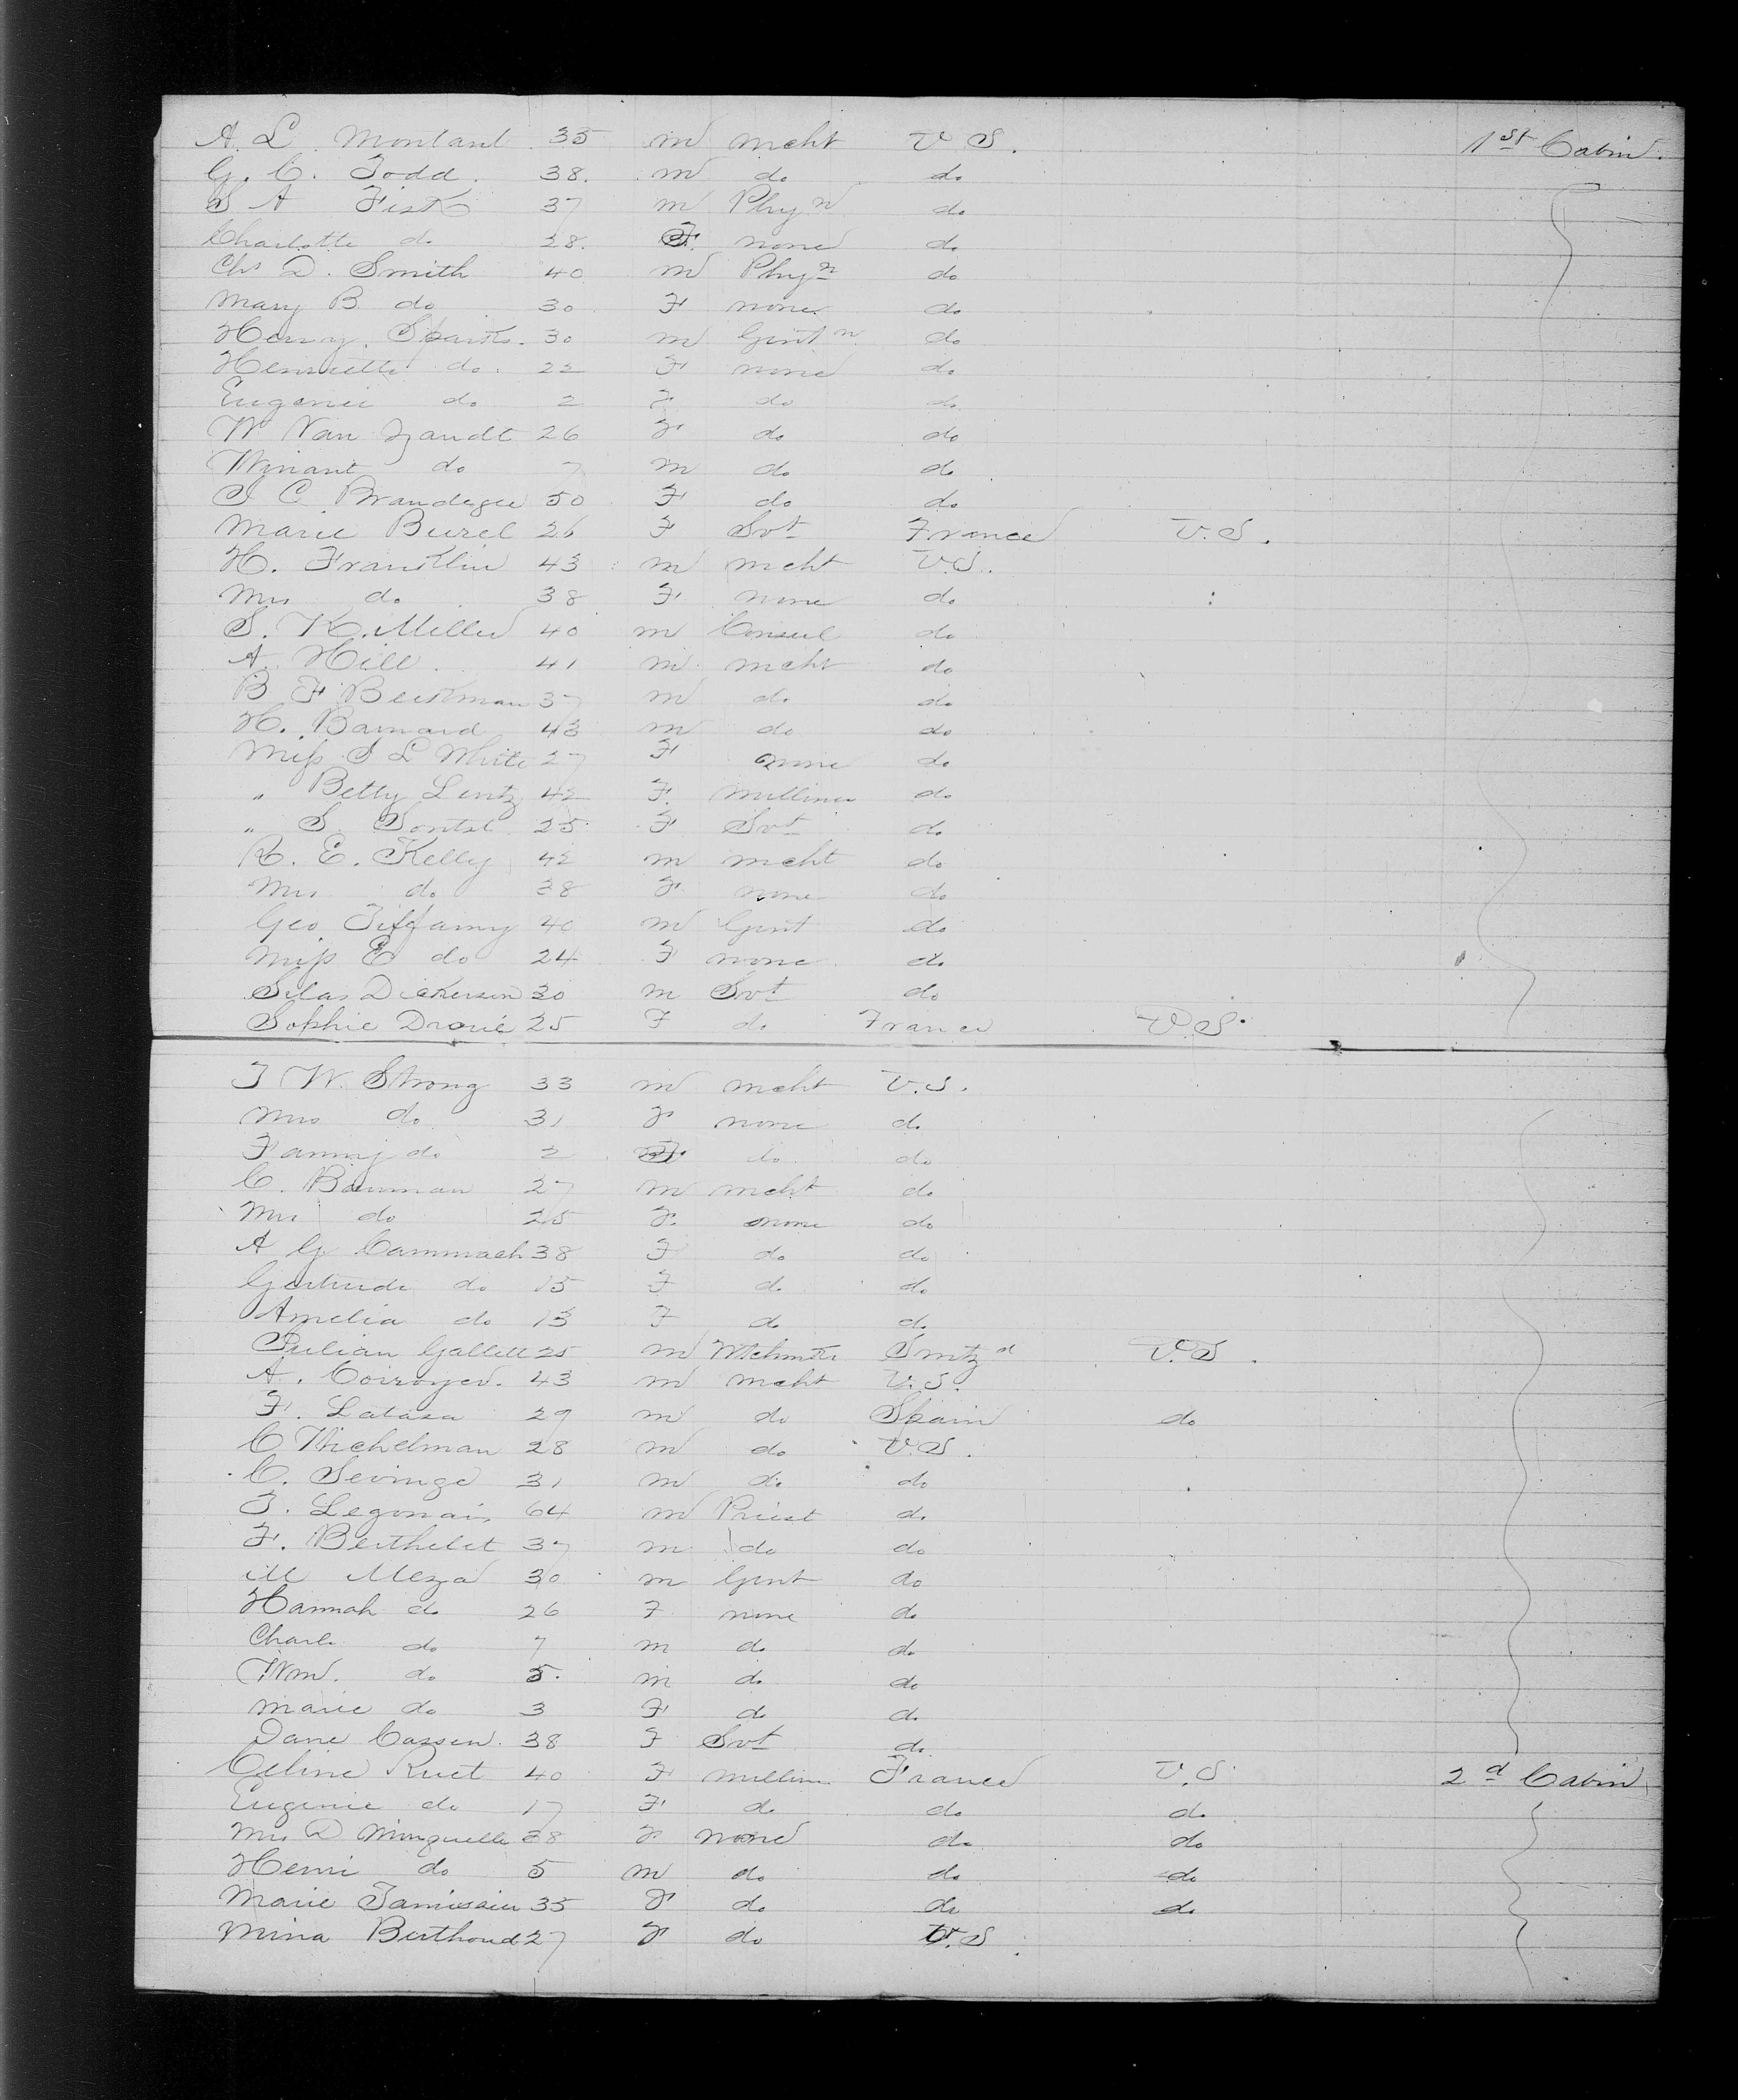 A. L. Montant 35 m mcht U S. 1st Cabin.
G. C. Todd. 38. m do do
S A Fisk 37 m Phyn do
Charlotte do 28. F. none do
Chs D. Smith 40 m Phyn do
Mary B. do 30 F none do
Henry. Sparks. 30 m Gentn do
Henriette do. 22 F none do
Eugenie do 2 F do do
W Van Zandt 26 F do do
Winant do 7 m do do
C Brandegee 50 F do do
Marie Burel 26 F Svt France U.S.
H. Franklin 43 m mcht U.S.
Mrs do 38 F none do
S. K. Miller 40 m Consul do
A. Hill. 41 m mcht do
B F Beekman 37 m do do
H. Barnard 43 m do do
Miss S L White 27 F none do
" Betty Lentz 42 F. milliner do
" S. 25 F Svt do
R. E. Kelly 42 m mcht do
Mrs do 38 F none do
Geo Tiffany 40 m Gent do
Miss E do 24 F none do
Silas Dickerson 30 m Svt do
Sophie Drouié 25 F do France U.S.
T W. Strong 33 m mcht U.S.
Mrs do 31 F none do
Fanny do 2 F. do do
C. Bauman 27 m mcht do
Mrs do 25 F. none do
A G Cammach 38 F do do
Gertrude do 15 F do do
Amelia do 13 F do do
Julian Gallett 25 m Wtchmkr Swtzd U.S.
A. 43 m mcht U.S.
F. Latasa 29 m do Spain do
C Wichelman 28 m do U.S.
C. Sevinge 31 m do do
T. Legonais 64 m Priest do
F. Berthelet 37 m do do
M Meza 30 m Gent do
Hannah do 26 F none do
Charls do 7 m do do
Wm. do 5. m do do
Marie do 3 F do do
Jane Cassen. 38 F Svt do
Celine Ruet 40 F milliner France U.S. 2d Cabin
Eugenie do 17 F do do do
Mrs D Minguelle 38 F none do do
Henri do 5 m do do do
Marie Jamissein 35 F do do do
Mina Berthoud 27 F do U.S.